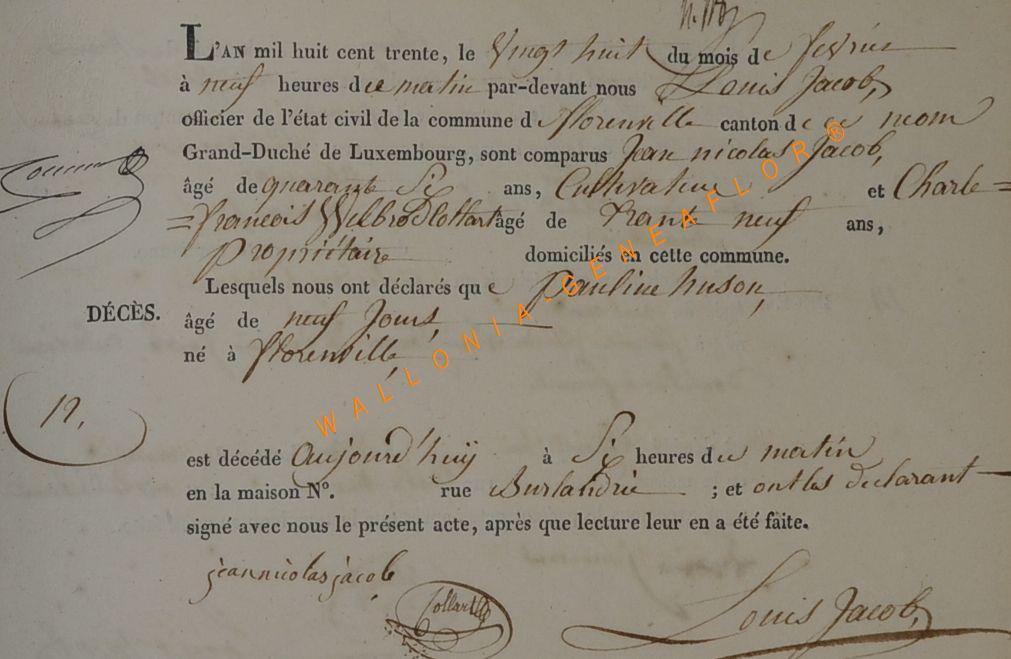 L'AN mil huit cent trente, le Vingt huit du mois de fevrier
à neuf heures de matin par-devant nous Louis Jacob,
officier de l'état civil de la commune de florenville canton de ce nom
Grand-Duché de Luxembourg, sont comparus Jean nicolas Jacob,
âgé de quarante Six ans, Cultivateur et Charle =
= francois Welbrod Collart âgé de trante neuf ans,
Propriétaire domiciliés en cette commune.
Lesquels nous ont déclarés que pauline huson,
DÉCÈS.
âgé de neuf Jours,
né à florenville,
12.
est décédé aujourd'huy à Six heures du matin
en la maison N°. rue Burlandrie ; et ont les declarant
signé avec nous le présent acte, après que lecture leur en a été faite.
jeannicolas jacob
Collart
Louis Jacob,
WALLONIA-GENEAFLOR®